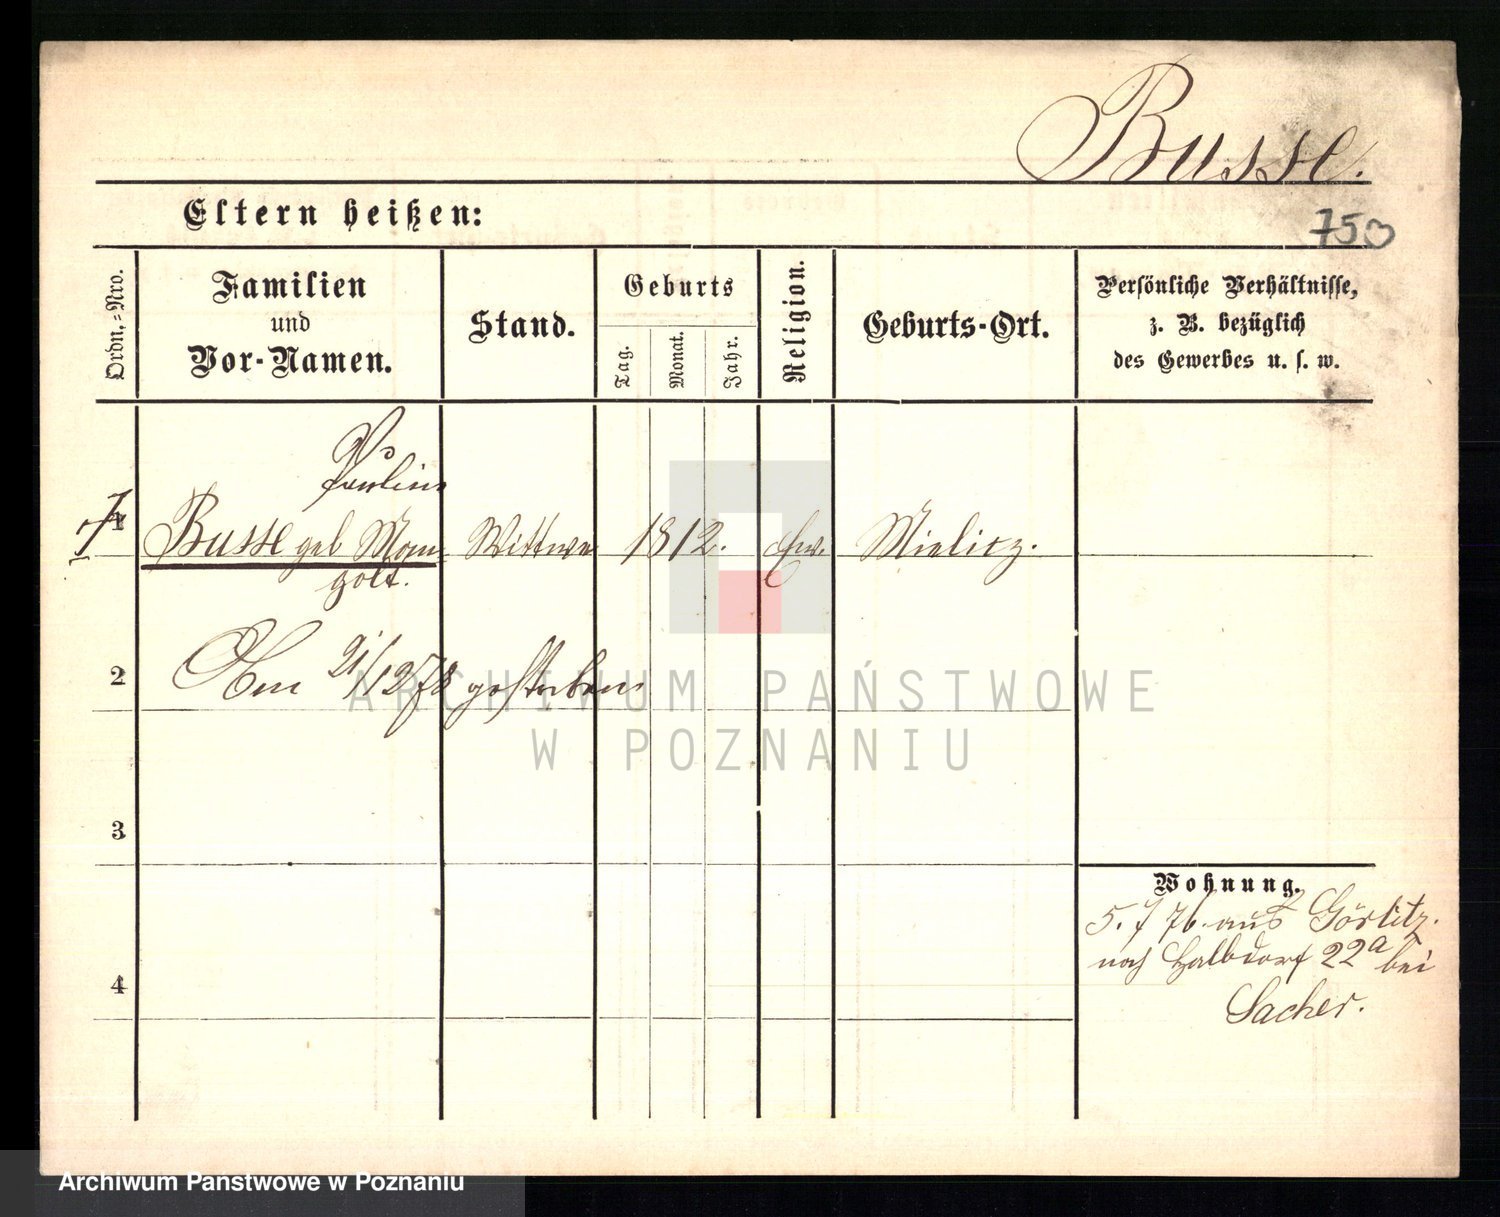 Busse.
Eltern heißen:
750
Ordn.-Nro.
Familien
und
Vor-Namen.
Stand.
Geburts
Tag.
Monat.
Jahr.
Religion.
Geburts-Ort.
Persönliche Verhältnisse,
z. B. bezüglich
des Gewerbes u. s. w.
Pauline
1 Busse geb Man- Wittwe 1812. Ev. Mielitz.
golt.
2 Am 21/12 78 gestorben
3
4
Wohnung.
5. 7 76 aus Görlitz.
nach Halbdorf 22a bei
Sacher.
ARCHIWUM PAŃSTWOWE
W POZNANIU
Archiwum Państwowe w Poznaniu